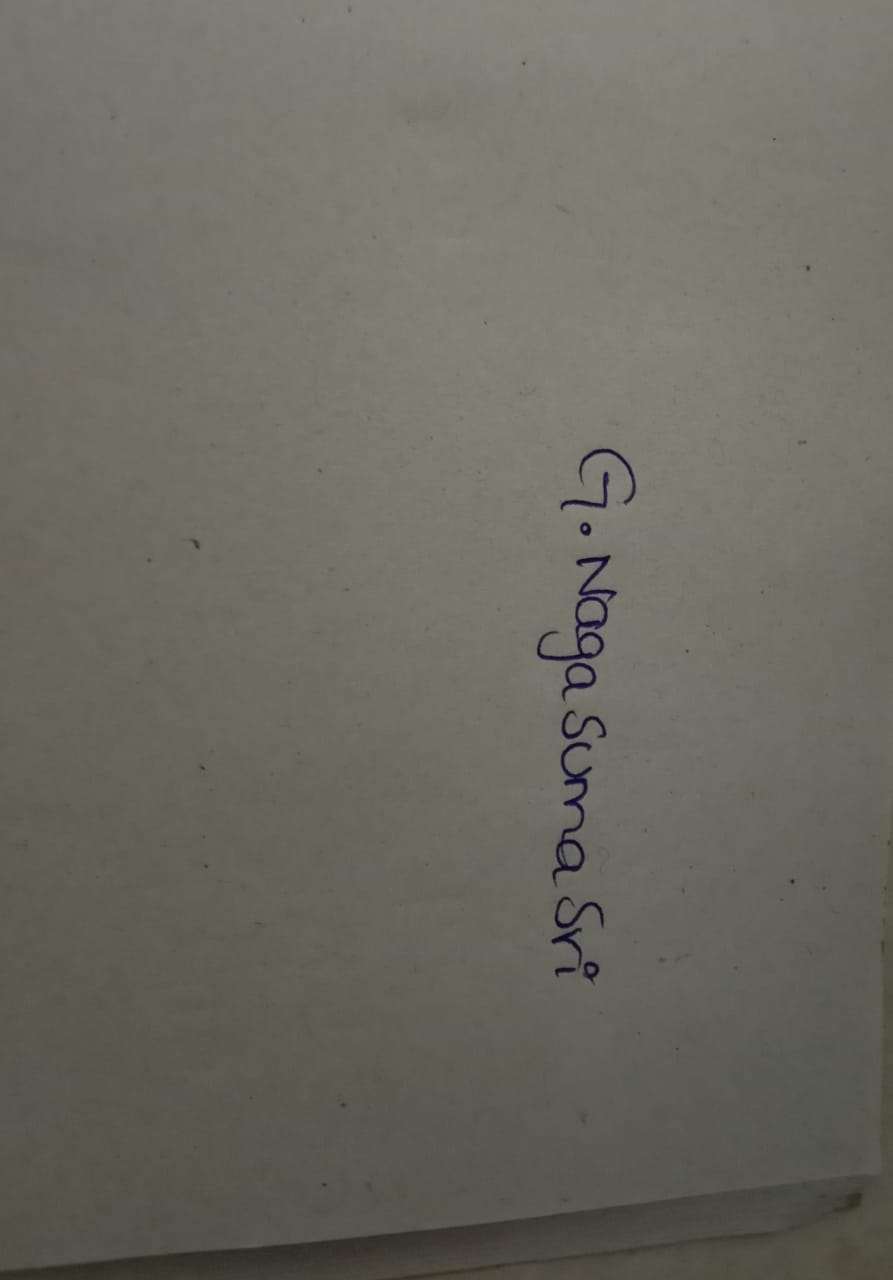 G. Naga Suma Sri